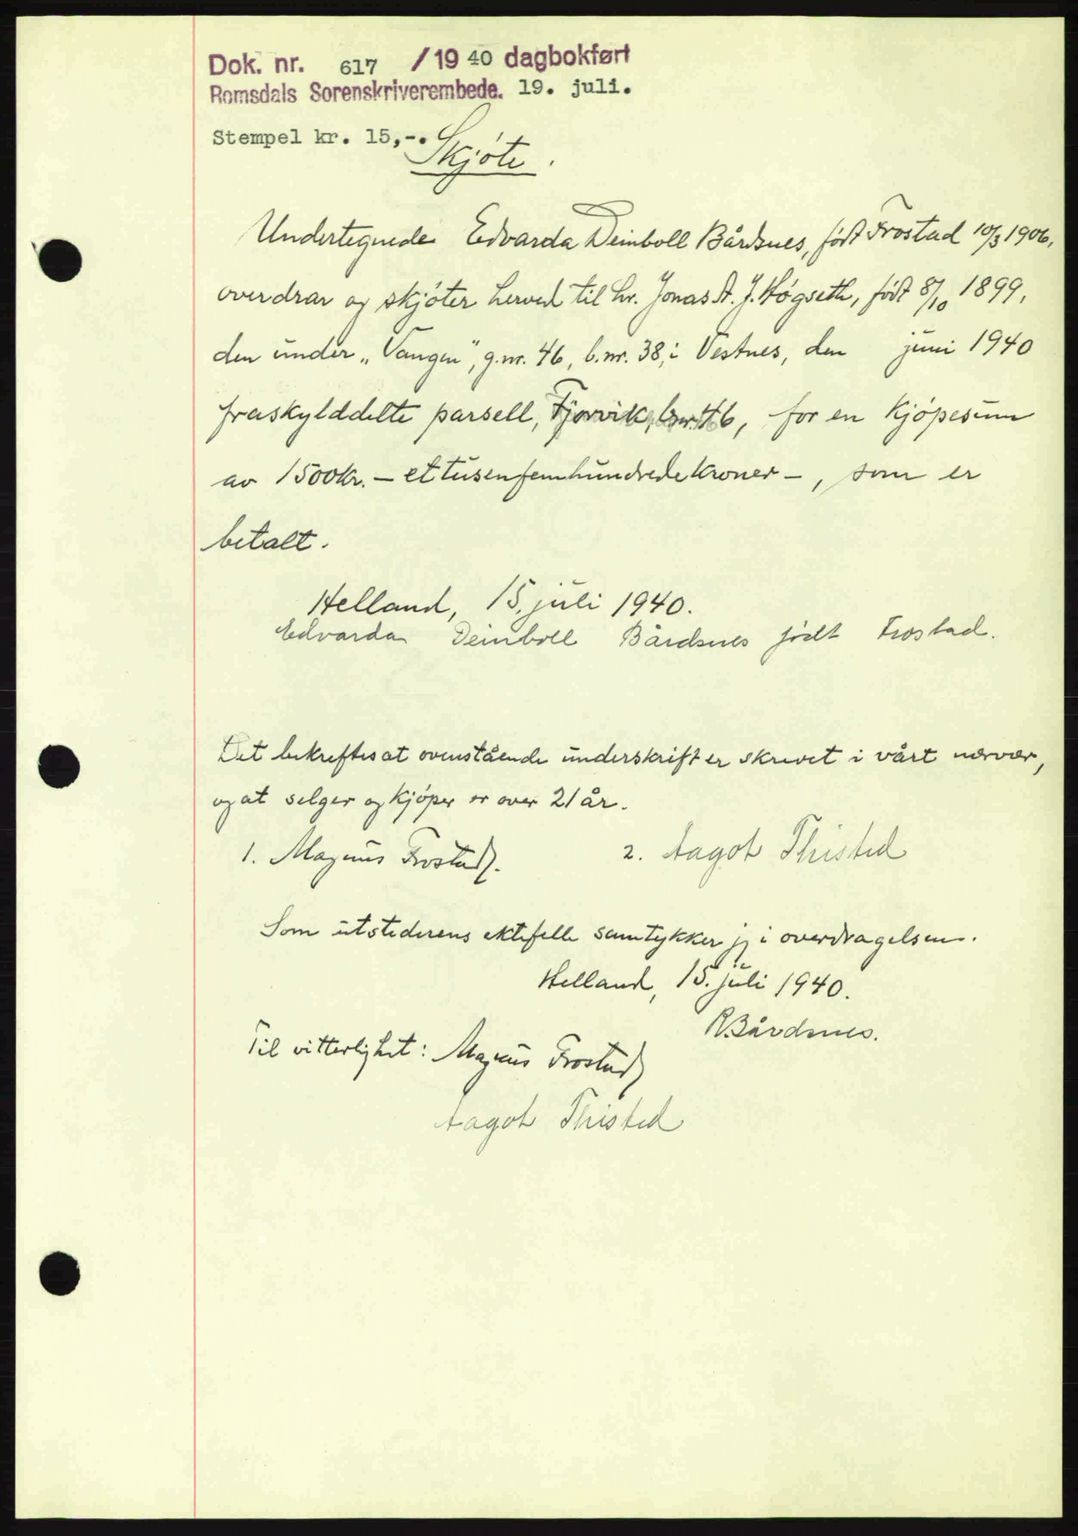 Dok. nr. 617 /1940 dagbokført
Romsdals Sorenskriverembede. 19. juli.
Stempel kr. 15,-.
Skjöte.
Undertegnede Edvarda Deinboll Bårdsnes, född Frostad 10/3 1906,
overdrar og skjöter herved til hr. Jonas A. J. Högseth, född 8/10 1899,
den under „Vangen", g.nr. 46, b.nr. 38, i Vestnes, den juni 1940
fraskylddelte parsell, Fjorvik, b.nr. 46, for en kjöpesum
av 1500kr. — ettusenfemhundrede kroner —, som er
betalt.
Helland, 15. juli 1940.
Edvarda Deinboll Bårdsnes födt Frostad.
Det bekreftes at ovenstående underskrift er skrevet i vårt nærvær,
og at selger og kjöper er over 21 år.
1. Magnus Frostad. 2. Aagot Thisted
Som utstederens ektefelle samtykker jeg i overdragelsen.
Helland, 15. juli 1940.
R. Bårdsnes.
Til vitterlighet: Magnus Frostad
Aagot Thisted